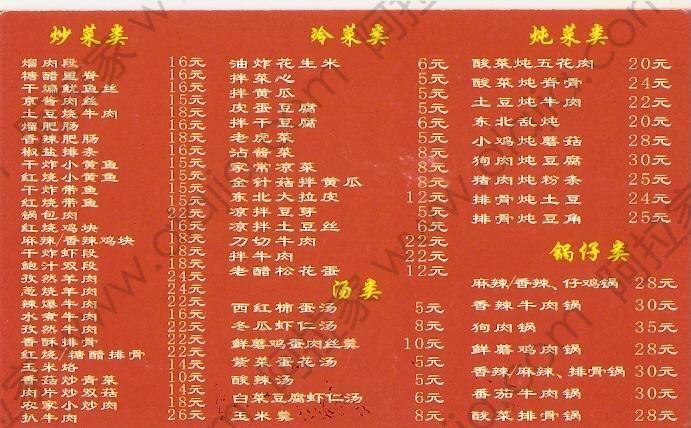 炒菜类
熘肉段 16元
糖醋里脊 16元
干煸鱿鱼丝 16元
京酱肉丝 15元
土豆烧牛肉 18元
熘肥肠 16元
香辣肥肠 18元
椒盐排条 16元
干炸小黄鱼 15元
红烧小黄鱼 15元
干炸带鱼 15元
红烧带鱼 15元
锅包肉 22元
红烧鸡块 16元
麻辣/香辣鸡块 18元
干炸虾段 18元
鲍汁双段 18元
孜然羊肉 24元
葱烧羊肉 24元
辣爆牛肉 22元
水煮牛肉 22元
孜然牛肉 22元
香酥排骨 22元
红烧/糖醋排骨 22元
玉米烙 14元
香菇炒青菜 10元
肉片炒双菇 14元
农家小炒肉 18元
扒牛肉 26元
冷菜类
油炸花生米 6元
拌菜心 5元
拌黄瓜 5元
皮蛋豆腐 5元
拌干豆腐 6元
老虎菜 5元
沾酱菜 8元
家常凉菜 8元
金针菇拌黄瓜 8元
东北大拉皮 12元
凉拌豆芽 5元
凉拌土豆丝 6元
刀切牛肉 22元
拌牛肉 22元
老醋松花蛋 12元
汤类
西红柿蛋汤 5元
冬瓜虾仁汤 8元
鲜蘑鸡蛋肉丝羹 10元
紫菜蛋花汤 5元
酸辣汤 5元
白菜豆腐虾仁汤 6元
玉米羹 8元
炖菜类
酸菜炖五花肉 20元
酸菜炖脊骨 24元
土豆炖牛肉 22元
东北乱炖 20元
小鸡炖蘑菇 28元
狗肉炖豆腐 30元
猪肉炖粉条 25元
排骨炖土豆 24元
排骨炖豆角 25元
锅仔类
麻辣/香辣、仔鸡锅 28元
香辣牛肉锅 30元
狗肉锅 35元
鲜蘑鸡肉锅 28元
香辣/麻辣、排骨锅 30元
番茄牛肉锅 30元
酸菜排骨锅 28元